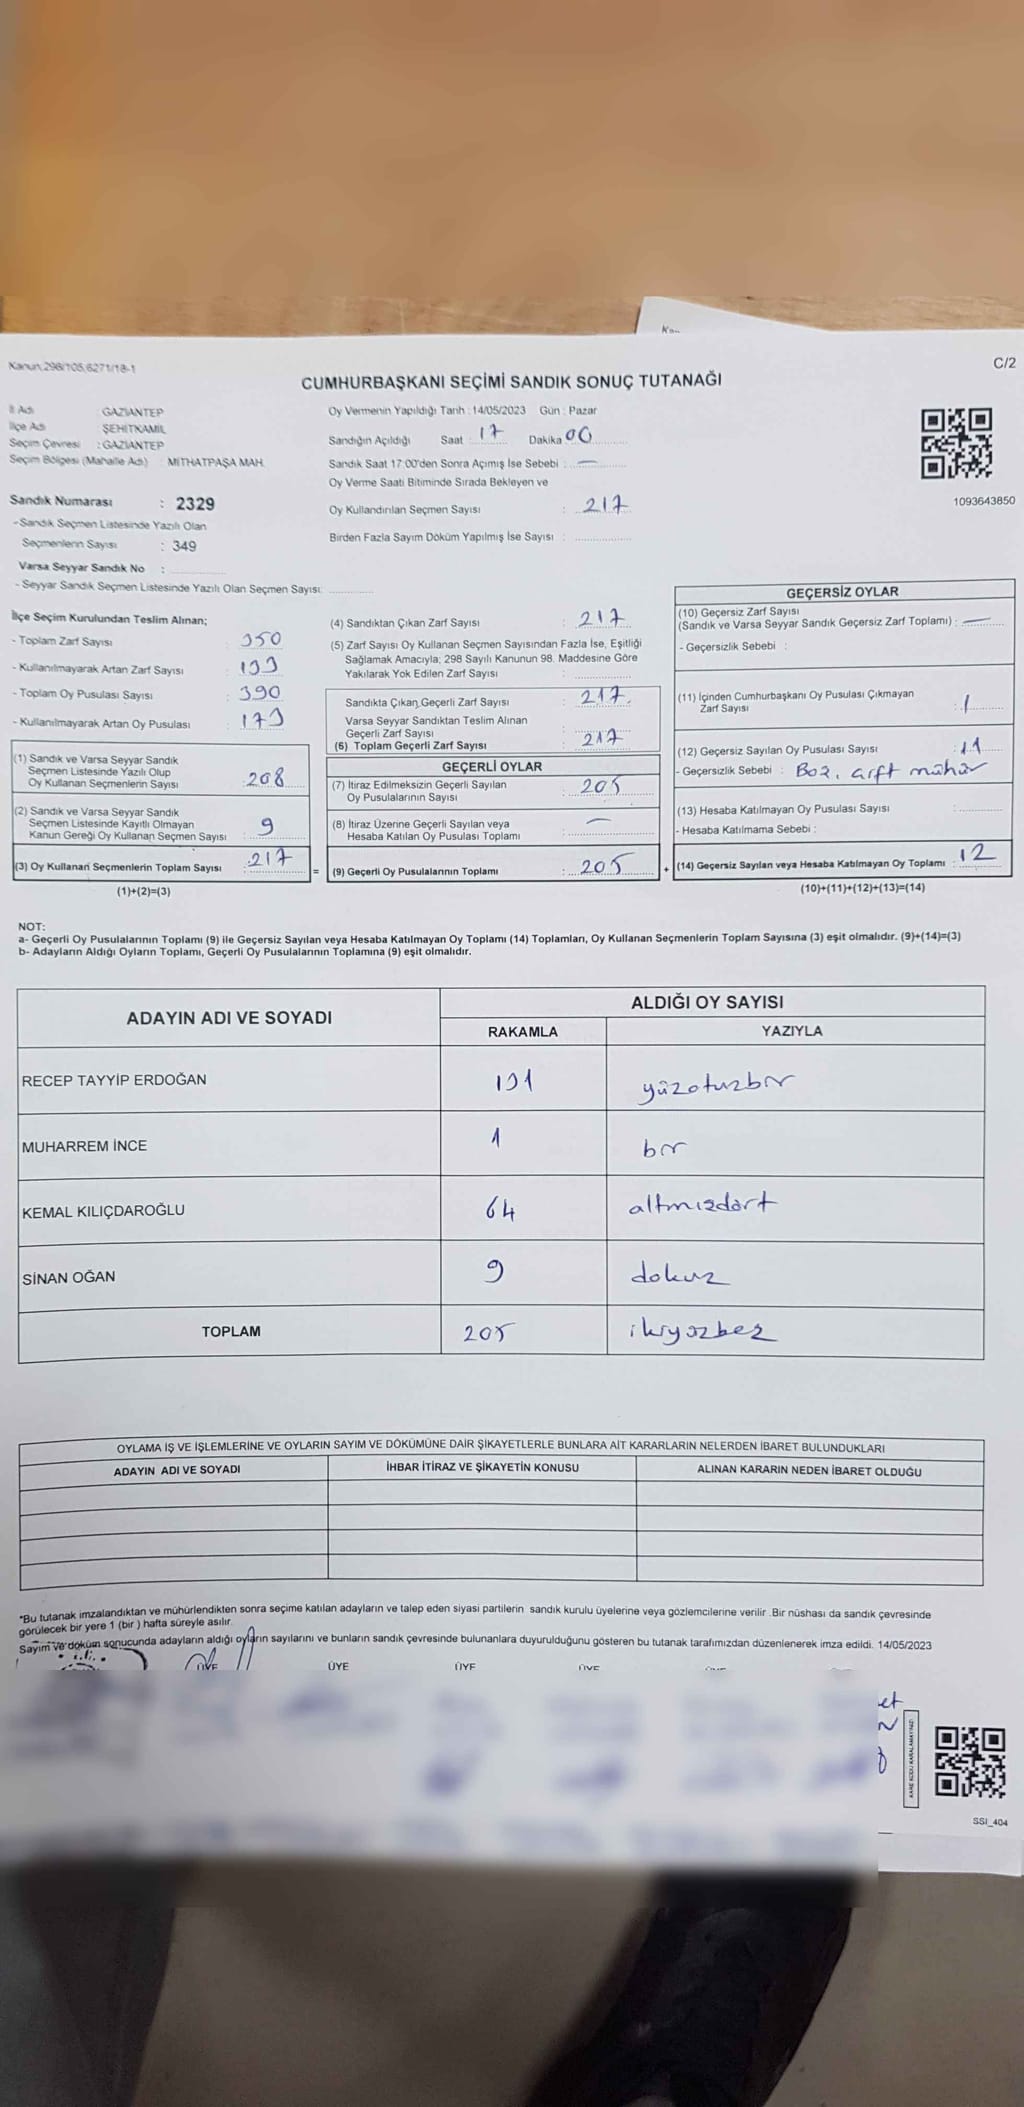 Kanun,298/105,6271/18-1
C/2
CUMHURBAŞKANI SEÇİMİ SANDIK SONUÇ TUTANAĞI
İl Adı GAZİANTEP
İlçe Adı ŞEHİTKAMİL
Seçim Çevresi : GAZİANTEP
Seçim Bölgesi (Mahalle Adı) : MİTHATPAŞA MAH.
Sandık Numarası : 2329
-Sandık Seçmen Listesinde Yazılı Olan
Seçmenlerin Sayısı : 349
Varsa Seyyar Sandık No :
- Seyyar Sandık Seçmen Listesinde Yazılı Olan Seçmen Sayısı:
Oy Vermenin Yapıldığı Tarih : 14/05/2023 Gün : Pazar
Sandığın Açıldığı Saat : 17 Dakika 00
Sandık Saat 17:00'den Sonra Açımış İse Sebebi : —
Oy Verme Saati Bitiminde Sırada Bekleyen ve
Oy Kullandırılan Seçmen Sayısı : 217
Birden Fazla Sayım Döküm Yapılmış İse Sayısı :
1093643850
İlçe Seçim Kurulundan Teslim Alınan;
- Toplam Zarf Sayısı : 350
- Kullanılmayarak Artan Zarf Sayısı : 133
- Toplam Oy Pusulası Sayısı : 390
- Kullanılmayarak Artan Oy Pusulası : 173
(1) Sandık ve Varsa Seyyar Sandık
Seçmen Listesinde Yazılı Olup
Oy Kullanan Seçmenlerin Sayısı : 208
(2) Sandık ve Varsa Seyyar Sandık
Seçmen Listesinde Kayıtlı Olmayan
Kanun Gereği Oy Kullanan Seçmen Sayısı : 9
(3) Oy Kullanan Seçmenlerin Toplam Sayısı : 217
(1)+(2)=(3)
(4) Sandıktan Çıkan Zarf Sayısı : 217
(5) Zarf Sayısı Oy Kullanan Seçmen Sayısından Fazla İse, Eşitliği
Sağlamak Amacıyla; 298 Sayılı Kanunun 98. Maddesine Göre
Yakılarak Yok Edilen Zarf Sayısı :
Sandıkta Çıkan Geçerli Zarf Sayısı : 217
Varsa Seyyar Sandıktan Teslim Alınan
Geçerli Zarf Sayısı :
(6) Toplam Geçerli Zarf Sayısı : 217
GEÇERLİ OYLAR
(7) İtiraz Edilmeksizin Geçerli Sayılan
Oy Pusulalarının Sayısı : 205
(8) İtiraz Üzerine Geçerli Sayılan veya
Hesaba Katılan Oy Pusulası Toplamı : —
= (9) Geçerli Oy Pusulalarının Toplamı : 205
GEÇERSİZ OYLAR
(10) Geçersiz Zarf Sayısı
(Sandık ve Varsa Seyyar Sandık Geçersiz Zarf Toplamı) : —
- Geçersizlik Sebebi :
(11) İçinden Cumhurbaşkanı Oy Pusulası Çıkmayan
Zarf Sayısı : 1
(12) Geçersiz Sayılan Oy Pusulası Sayısı : 11
- Geçersizlik Sebebi : Boş, çift mühür
(13) Hesaba Katılmayan Oy Pusulası Sayısı :
- Hesaba Katılmama Sebebi :
+ (14) Geçersiz Sayılan veya Hesaba Katılmayan Oy Toplamı : 12
(10)+(11)+(12)+(13)=(14)
NOT:
a- Geçerli Oy Pusulalarının Toplamı (9) ile Geçersiz Sayılan veya Hesaba Katılmayan Oy Toplamı (14) Toplamları, Oy Kullanan Seçmenlerin Toplam Sayısına (3) eşit olmalıdır. (9)+(14)=(3)
b- Adayların Aldığı Oyların Toplamı, Geçerli Oy Pusulalarının Toplamına (9) eşit olmalıdır.
ADAYIN ADI VE SOYADI
ALDIĞI OY SAYISI
RAKAMLA YAZIYLA
RECEP TAYYİP ERDOĞAN 131 yüzotuzbir
MUHARREM İNCE 1 bir
KEMAL KILIÇDAROĞLU 64 altmışdört
SİNAN OĞAN 9 dokuz
TOPLAM 205 ikiyüzbeş
OYLAMA İŞ VE İŞLEMLERİNE VE OYLARIN SAYIM VE DÖKÜMÜNE DAİR ŞİKAYETLERLE BUNLARA AİT KARARLARIN NELERDEN İBARET BULUNDUKLARI
ADAYIN ADI VE SOYADI İHBAR İTİRAZ VE ŞİKAYETİN KONUSU ALINAN KARARIN NEDEN İBARET OLDUĞU
*Bu tutanak imzalandıktan ve mühürlendikten sonra seçime katılan adayların ve talep eden siyasi partilerin sandık kurulu üyelerine veya gözlemcilerine verilir. Bir nüshası da sandık çevresinde
görülecek bir yere 1 (bir ) hafta süreyle asılır.
Sayım ve döküm sonucunda adayların aldığı oyların sayılarını ve bunların sandık çevresinde bulunanlara duyurulduğunu gösteren bu tutanak tarafımızdan düzenlenerek imza edildi. 14/05/2023
ÜYE ÜYE ÜYE ÜYE
KARE KODU KARALAMAYINIZ!
SSI_404